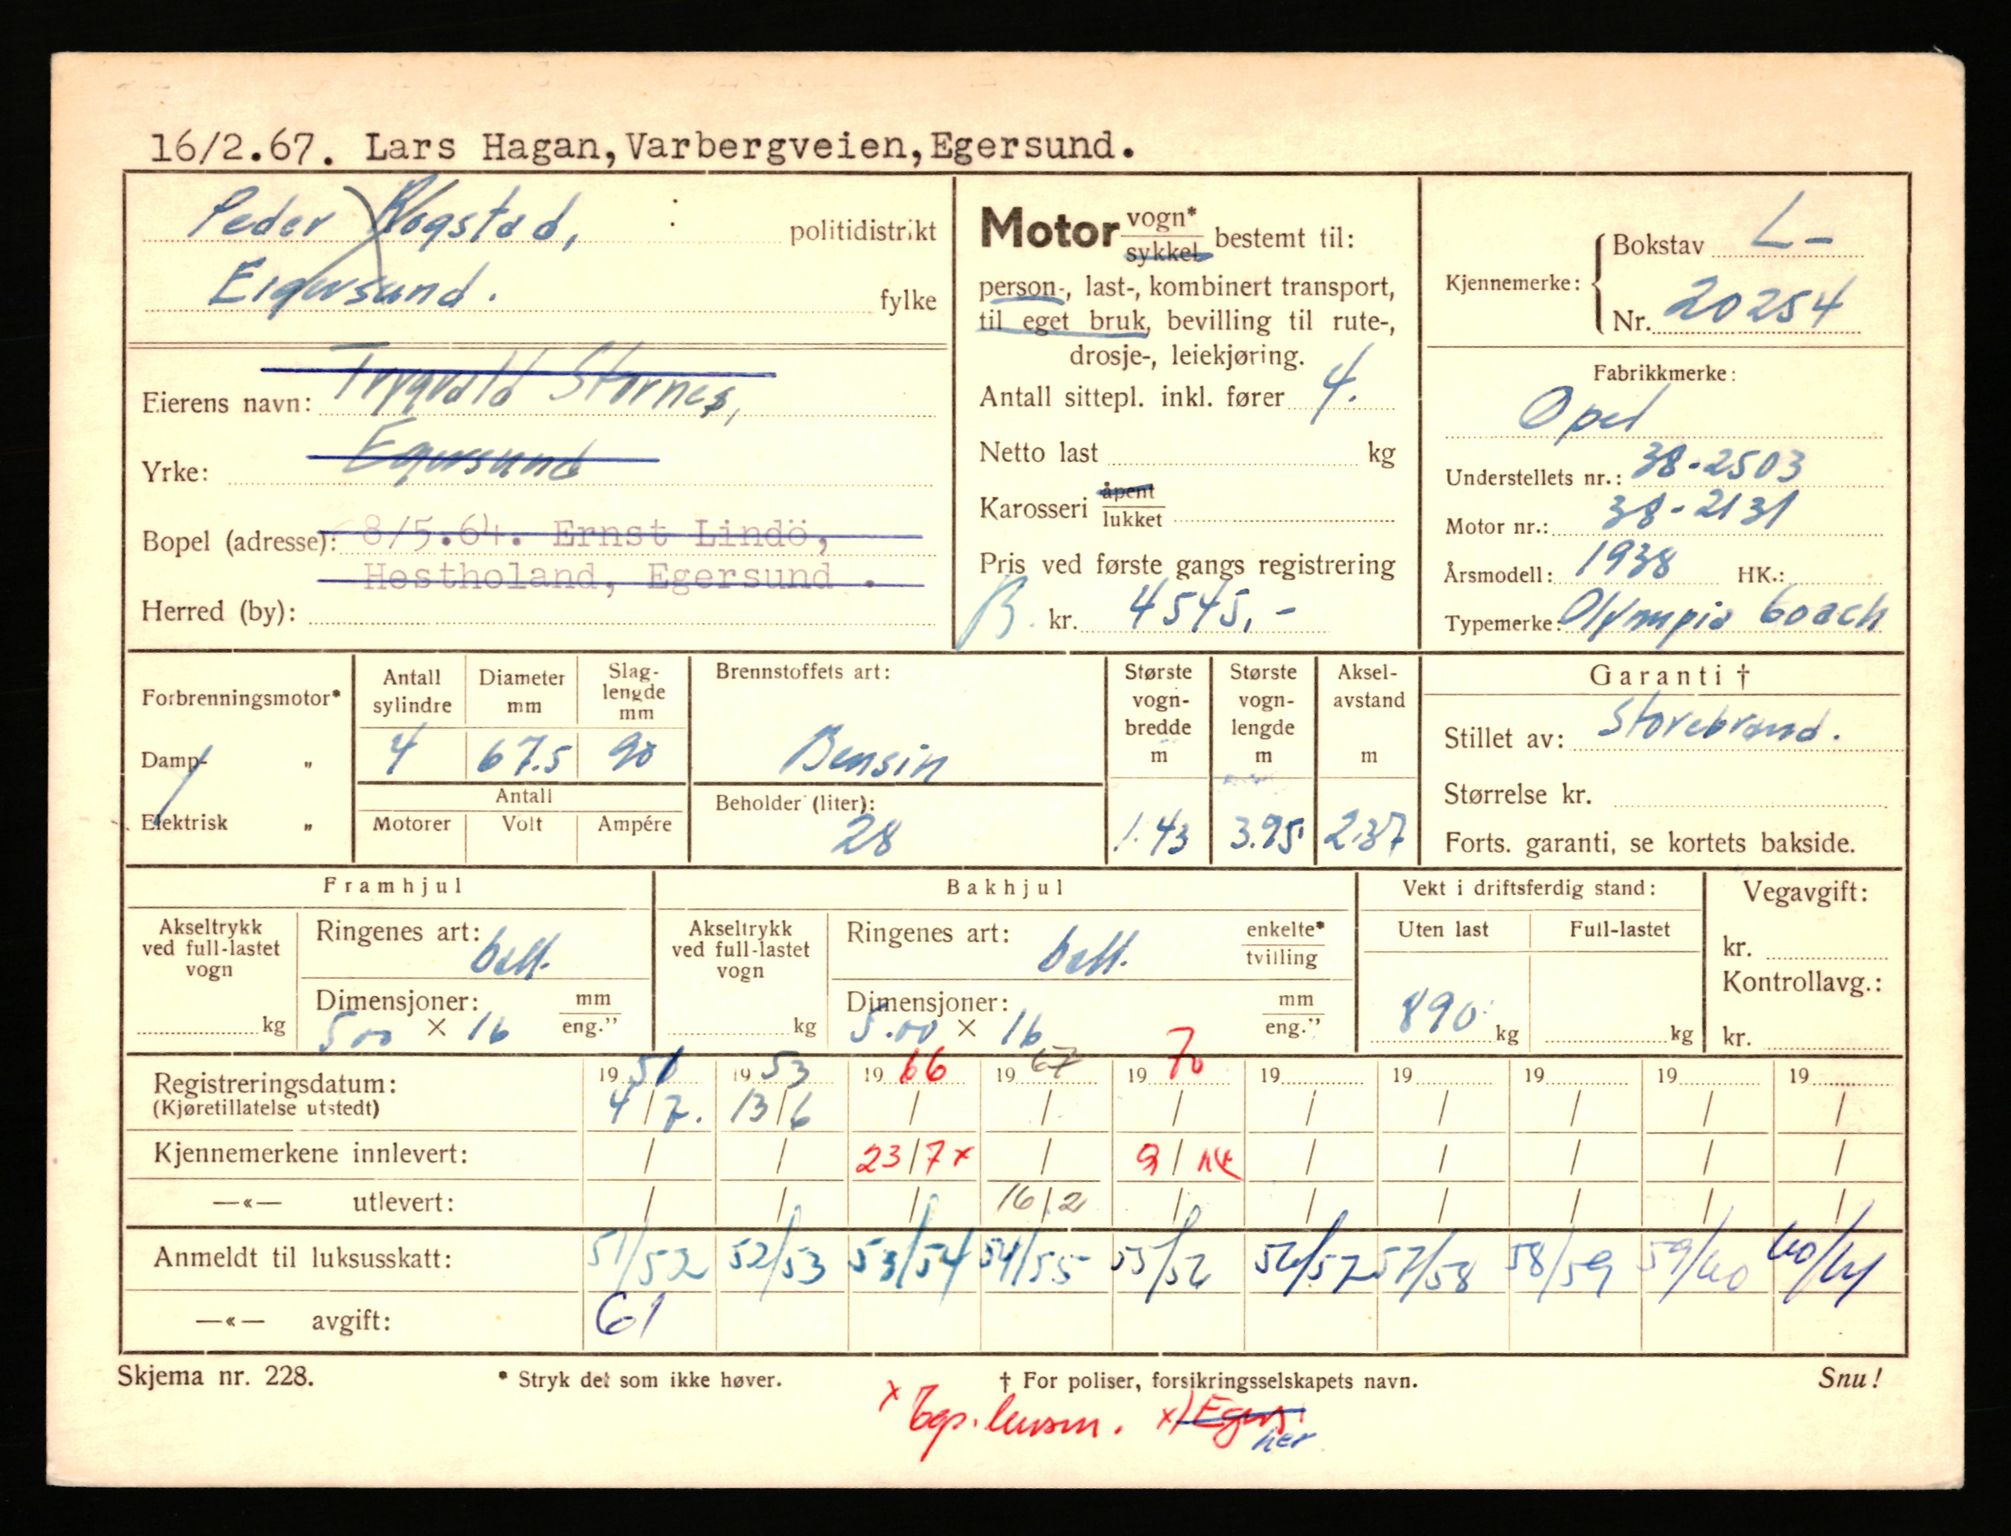 16/2.67. Lars Hagan, Varbergveien, Egersund.
Peder Rogstad, politidistrikt
Eigersund. fylke
Eierens navn: Trygvald Stornes,
Yrke: Egersund
Bopel (adresse): 8/5.64. Ernst Lindö,
Hestholand, Egersund .
Herred (by):
Motor vogn* sykkel bestemt til:
person-, last-, kombinert transport,
til eget bruk, bevilling til rute-,
drosje-, leiekjøring.
Antall sittepl. inkl. fører 4.
Netto last kg
Karosseri åpent lukket
Pris ved første gangs registrering
B. kr. 4545,-
Kjennemerke: Bokstav L-
Nr. 20254
Fabrikkmerke:
Opel
Understellets nr.: 38-2503
Motor nr.: 38-2131
Årsmodell: 1938 HK.:
Typemerke: Olympia coach
Forbrenningsmotor*
Damp- "
Elektrisk "
Antall sylindre Diameter mm Slag-lengde mm
4 67.5 90
Antall
Motorer Volt Ampére
Brennstoffets art:
Bensin
Beholder (liter):
28
Største vogn-bredde m Største vogn-lengde m Aksel-avstand m
1.43 3.95 2.37
Garanti †
Stillet av: Storebrand.
Størrelse kr.
Forts. garanti, se kortets bakside.
Framhjul
Akseltrykk ved full-lastet vogn
kg
Ringenes art: ball.
Dimensjoner: mm eng."
5.00 × 16
Bakhjul
Akseltrykk ved full-lastet vogn
kg
Ringenes art: ball. enkelte* tvilling
Dimensjoner: mm eng."
5.00 × 16
Vekt i driftsferdig stand:
Uten last Full-lastet
890 kg kg
Vegavgift:
kr.
Kontrollavg.:
kr.
Registreringsdatum: 1951 1953 1966 1967 1970 19 19 19 19 19
(Kjøretillatelse utstedt) 4/7. 13/6 / / / / / / / /
Kjennemerkene innlevert: / / 23/7 x / 9/ / / / / /
—«— utlevert: / / / 16/2 / / / / / /
Anmeldt til luksusskatt: 51/52 52/53 53/54 54/55 55/56 56/57 57/58 58/59 59/60 60/61
—«— avgift: 61
Skjema nr. 228. * Stryk det som ikke høver. † For poliser, forsikringsselskapets navn. Snu!
x Egs. lensm. x) Egers.
her